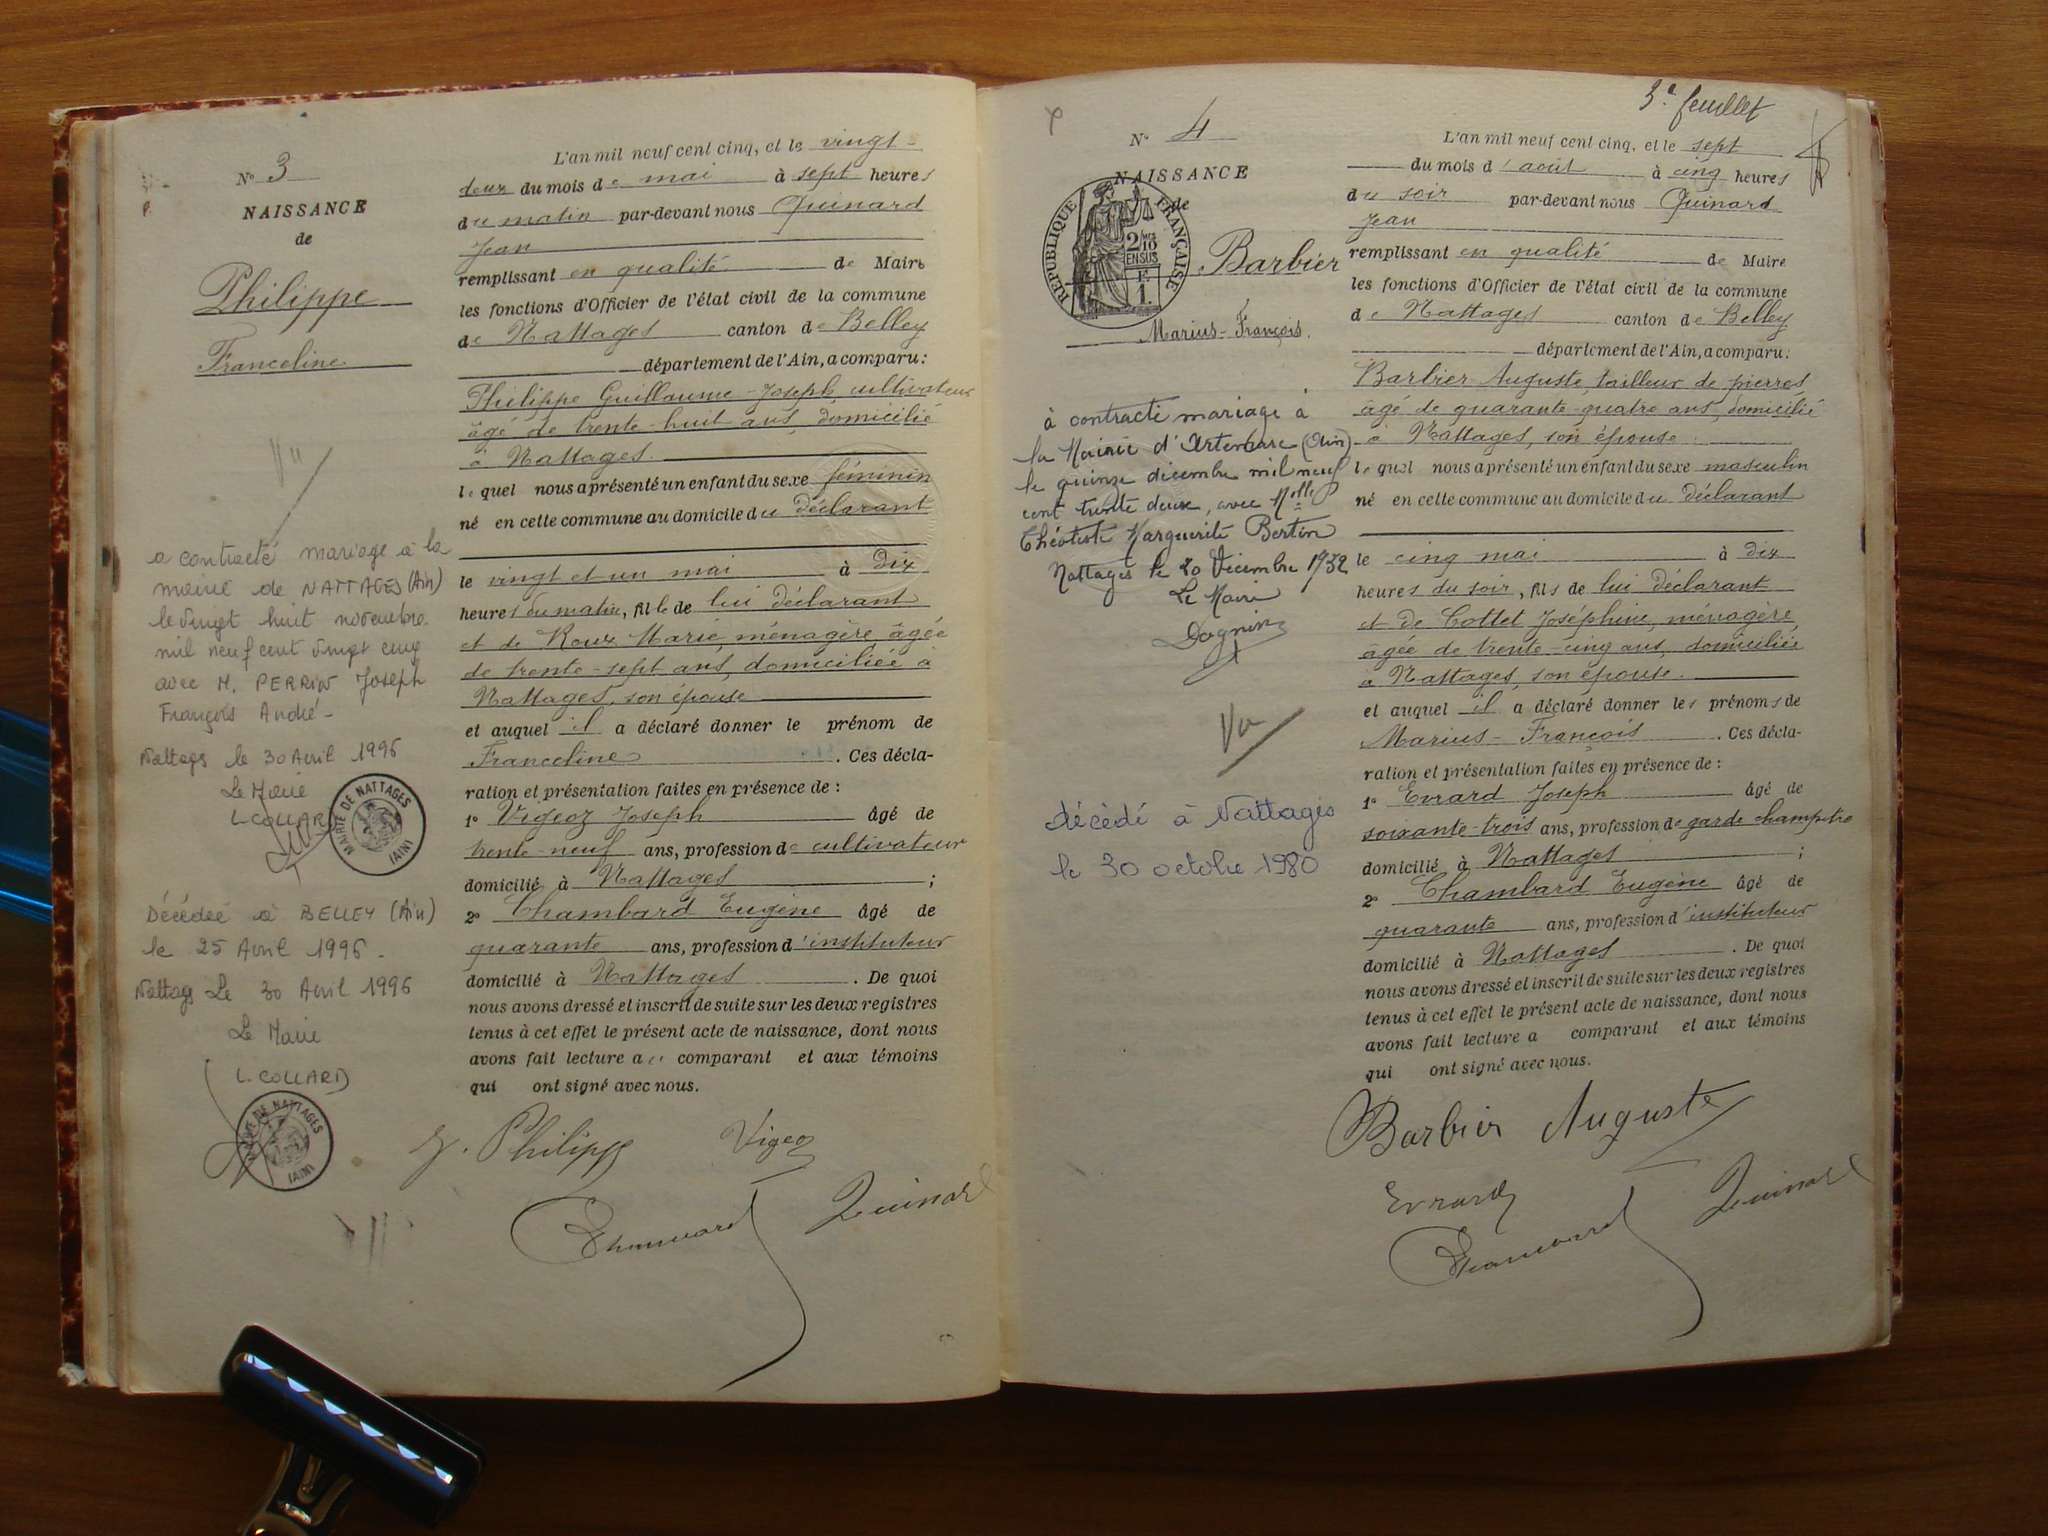 N° 3
NAISSANCE
de
Philippe
Franceline
Vu
a contracté mariage à la
mairie de NATTAGES (Ain)
le vingt huit novembre
mil neuf cent vingt cinq
avec M. PERRIN Joseph
François André -
Nattages le 30 Avril 1996
Le Maire
L. COLLARD
MAIRIE DE NATTAGES
(AIN)
Décédée à BELLEY (Ain)
le 25 Avril 1996 -
Nattages Le 30 Avril 1996
Le Maire
L. COLLARD
MAIRIE DE NATTAGES
(AIN)
L'an mil neuf cent cinq, et le vingt-
deux du mois de mai à sept heures
du matin par-devant nous Quinard
Jean
remplissant en qualité de Maire
les fonctions d'Officier de l'état civil de la commune
de Nattages canton de Belley
département de l'Ain, a comparu:
Philippe Guillaume-Joseph, cultivateur
âgé de trente-huit ans, domicilié
à Nattages.
lequel nous a présenté un enfant du sexe féminin
né en cette commune au domicile du déclarant
le vingt et un mai à dix
heures du matin, fille de lui déclarant
et de Roux Marie, ménagère âgée
de trente-sept ans, domiciliée à
Nattages, son épouse
et auquel il a déclaré donner le prénom de
Franceline. Ces décla-
ration et présentation faites en présence de :
1° Vigeoz Joseph âgé de
trente-neuf ans, profession de cultivateur
domicilié à Nattages ;
2° Chambard Eugène âgé de
quarante ans, profession d'instituteur
domicilié à Nattages. De quoi
nous avons dressé et inscrit de suite sur les deux registres
tenus à cet effet le présent acte de naissance, dont nous
avons fait lecture au comparant et aux témoins
qui ont signé avec nous.
J. Philippe Vigeoz
Chambard Quinard
3e feuillet
N° 4
NAISSANCE
de
REPUBLIQUE FRANÇAISE
2/10
EN SUS
F.
1.
Barbier
Marius-François.
à contracté mariage à
la Mairie d'Artemare (Ain)
le quinze décembre mil neuf
cent trente deux, avec Melle
Théotiste Marguerite Bertin
Nattages le 20 Décembre 1932
Le Maire
Dognin
Vu
décédé à Nattages
le 30 octobre 1980
L'an mil neuf cent cinq, et le sept
du mois d'août à cinq heures
du soir par-devant nous Quinard
Jean
remplissant en qualité de Maire
les fonctions d'Officier de l'état civil de la commune
de Nattages canton de Belley
département de l'Ain, a comparu:
Barbier Auguste, tailleur de pierres,
âgé de quarante-quatre ans, domicilié
à Nattages, son épouse.
lequel nous a présenté un enfant du sexe masculin
né en cette commune au domicile du déclarant
le cinq mai à dix
heures du soir, fils de lui déclarant
et de Cottet Joséphine, ménagère,
âgée de trente-cinq ans, domiciliée
à Nattages, son épouse.
et auquel il a déclaré donner les prénoms de
Marius-François. Ces décla-
ration et présentation faites en présence de :
1° Evrard Joseph âgé de
soixante-trois ans, profession de garde champêtre
domicilié à Nattages ;
2° Chambard Eugène âgé de
quarante ans, profession d'instituteur
domicilié à Nattages. De quoi
nous avons dressé et inscrit de suite sur les deux registres
tenus à cet effet le présent acte de naissance, dont nous
avons fait lecture a comparant et aux témoins
qui ont signé avec nous.
Barbier Auguste
Evrard
Chambard Quinard